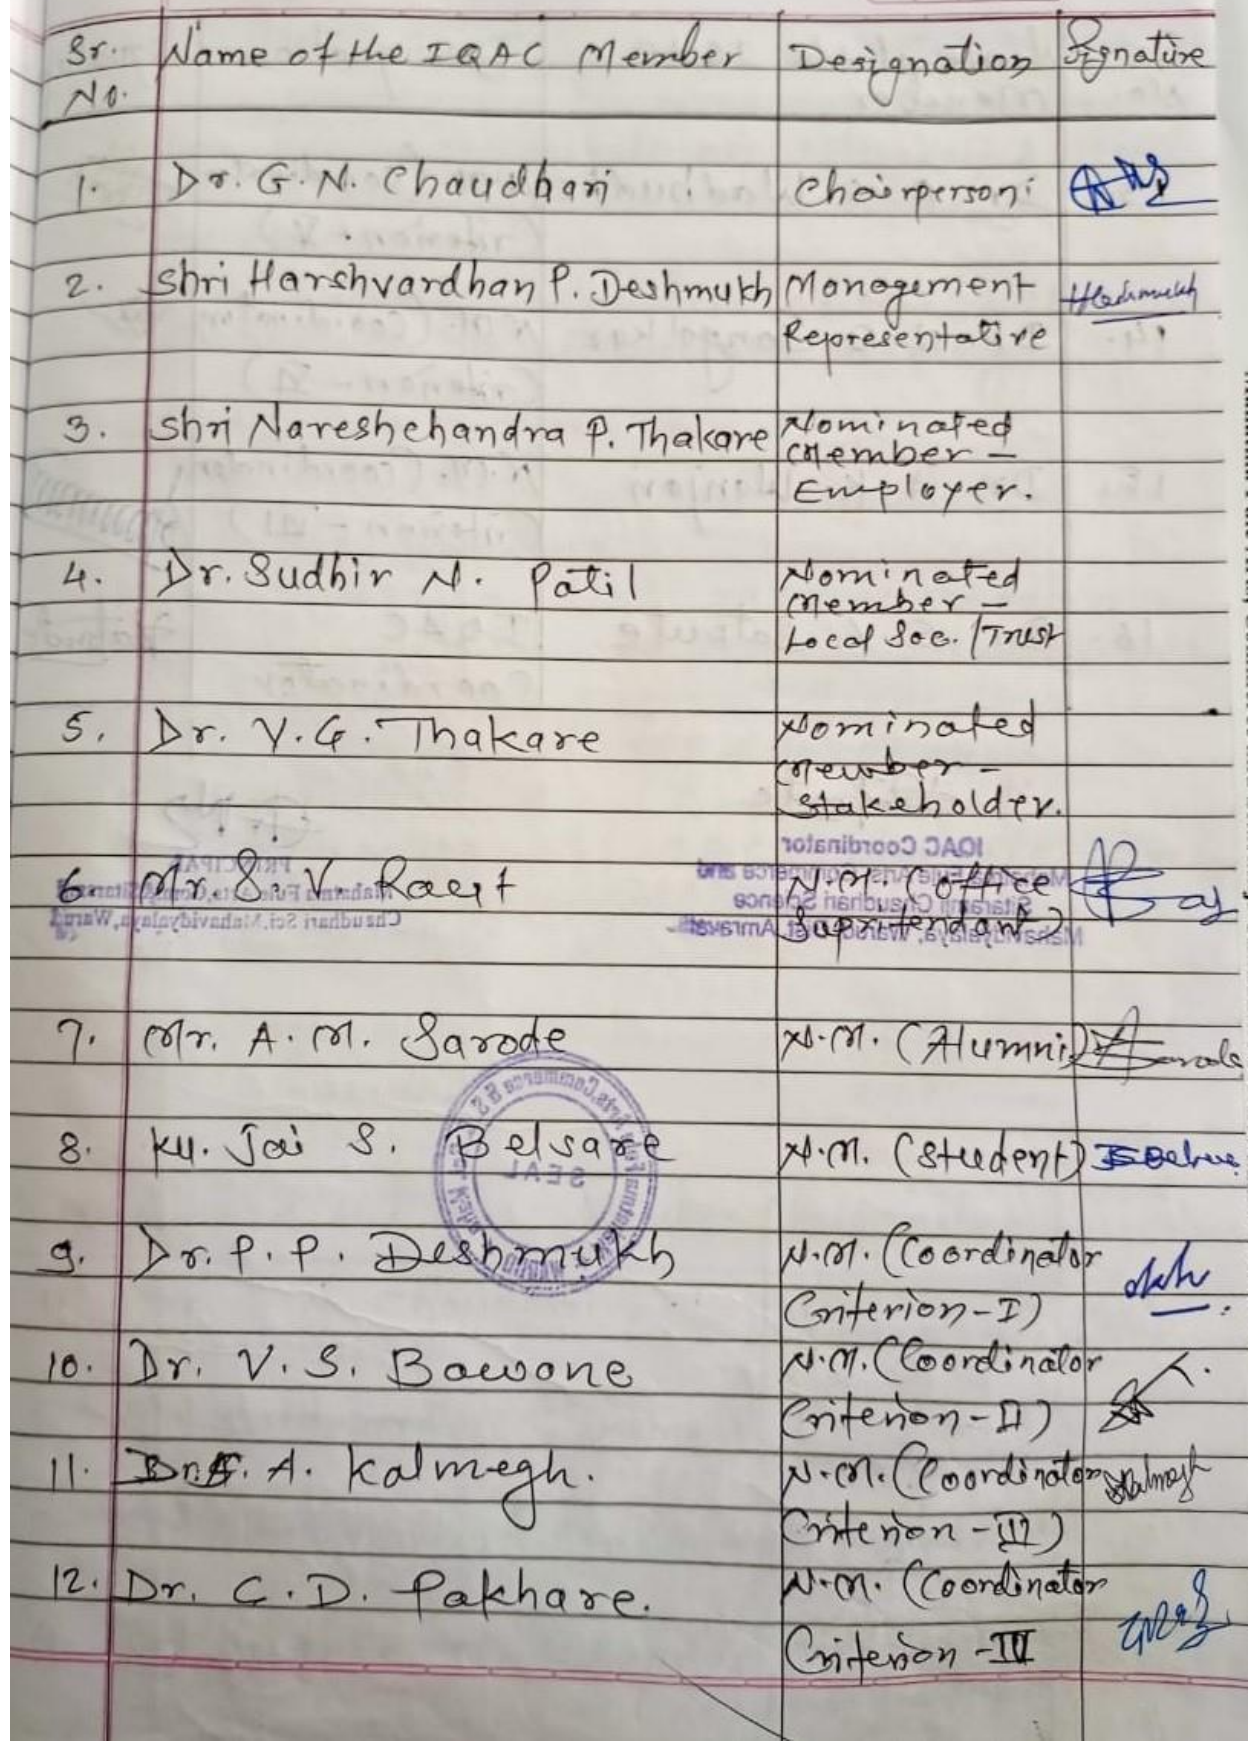 Sr. Name of the IQAC Member Designation Signature
No.
1. Dr. G. N. Chaudhari Chairperson
2. Shri Harshvardhan P. Deshmukh Management
Representative
3. Shri Nareshchandra P. Thakare Nominated
Member -
Employer.
4. Dr. Sudhir N. Patil Nominated
Member -
Local Soc. / Trust
5. Dr. V. G. Thakare Nominated
Member -
Stakeholder.
IQAC Coordinator
6. Mr. S. V. Raut N.M. (Office
Supritendant)
7. Mr. A. M. Sarode N.M. (Alumni)
8. Ku. Jai S. Belsare N.M. (Student)
SEAL
9. Dr. P. P. Deshmukh N.M. (Coordinator
Criterion-I)
10. Dr. V. S. Bawane N.M. (Coordinator
Criterion-II)
11. A. Kalmegh. N.M. (Coordinator
Criterion-III)
12. Dr. C. D. Pakhare. N.M. (Coordinator
Criterion-IV